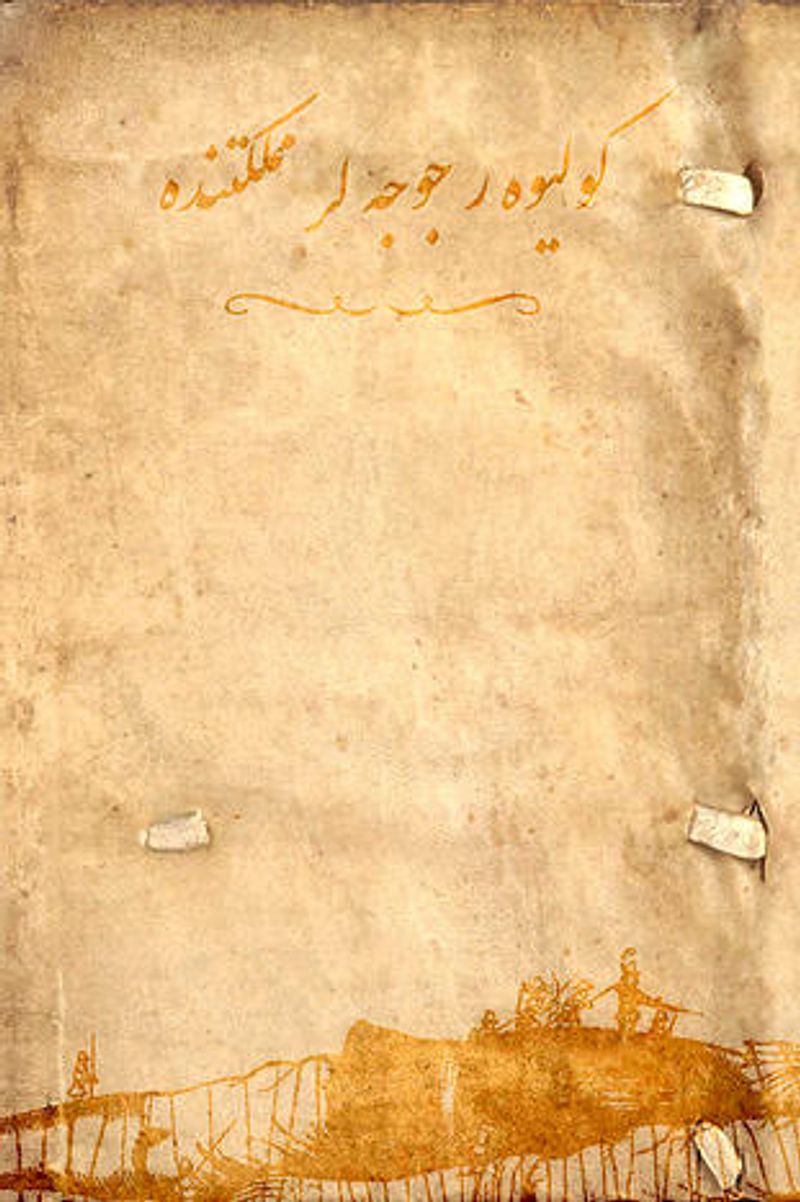 كوليوه ر جوجه لر مملكتنده